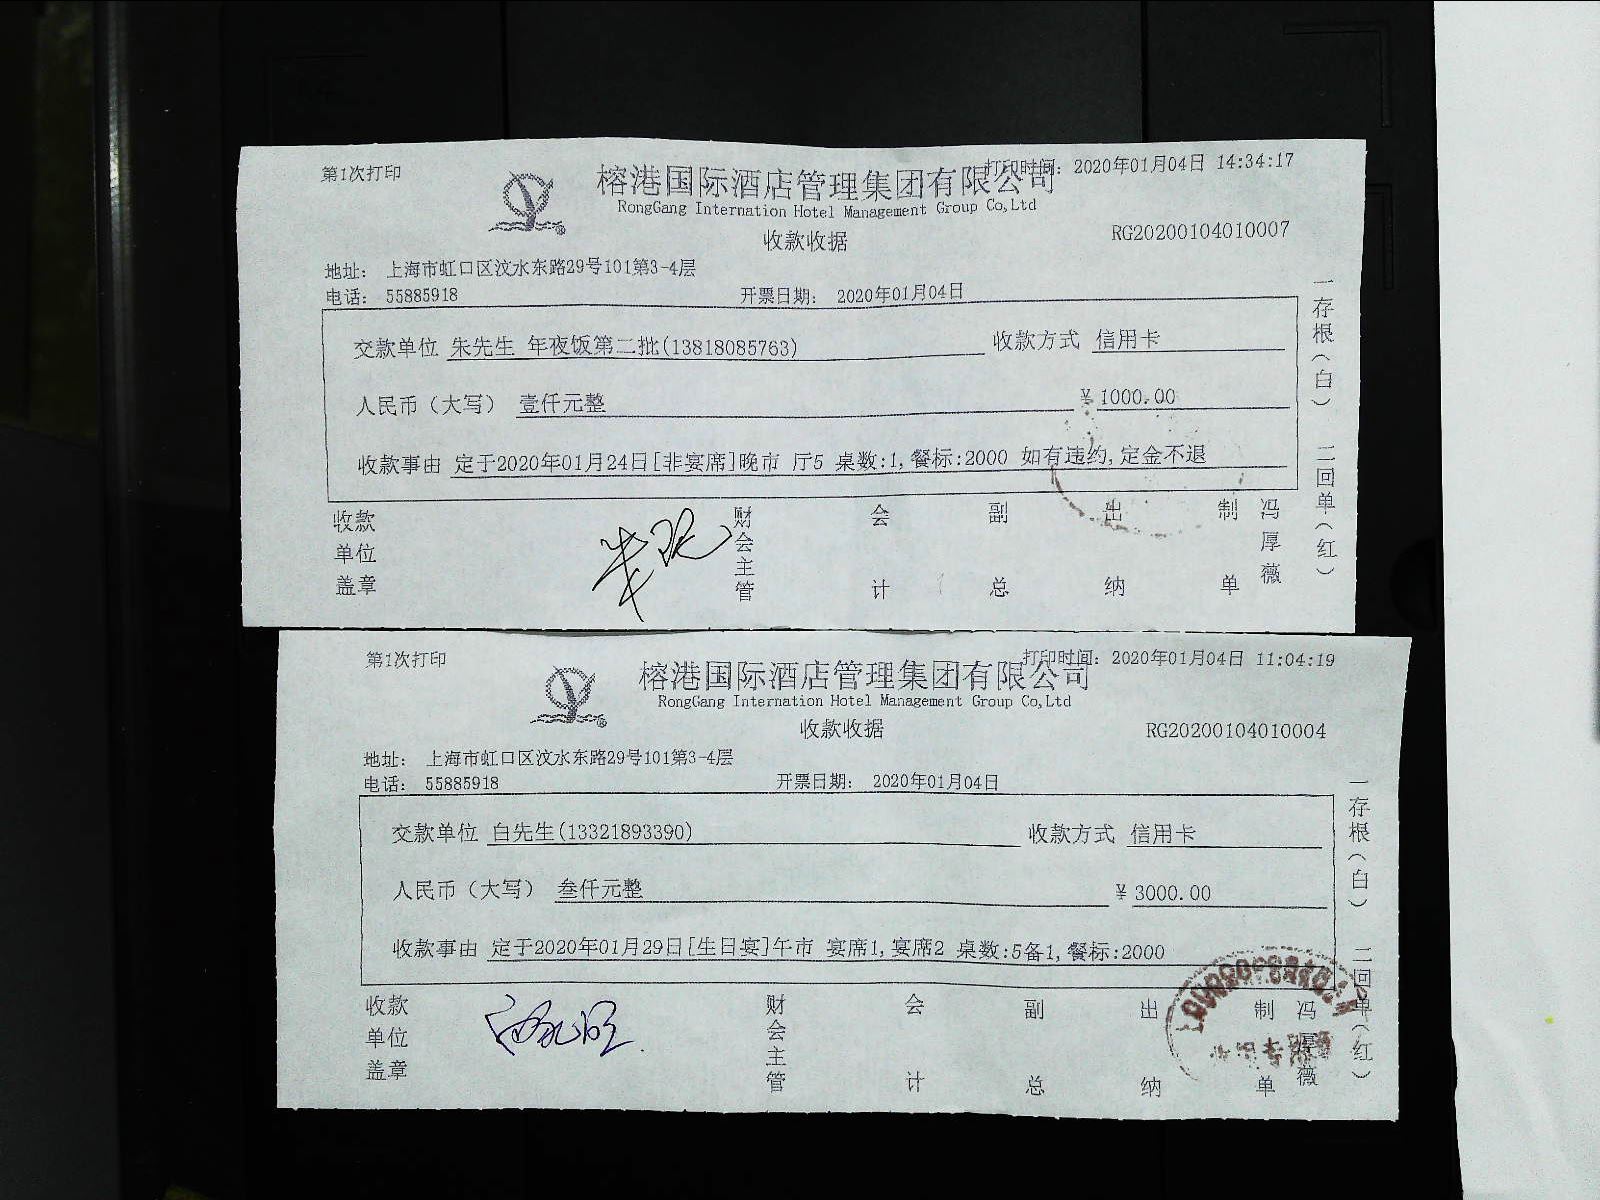 第1次打印
打印时间: 2020年01月04日 14:34:17
榕港国际酒店管理集团有限公司
RongGang Internation Hotel Management Group Co,Ltd
收款收据
RG20200104010007
地址: 上海市虹口区汶水东路29号101第3-4层
电话: 55885918 开票日期: 2020年01月04日
交款单位 朱先生 年夜饭第二批(13818085763) 收款方式 信用卡
人民币(大写) 壹仟元整 ¥1000.00
收款事由 定于2020年01月24日[非宴席]晚市 厅5 桌数:1,餐标:2000 如有违约,定金不退
收款单位盖章 财会主管 会计 副总 出纳 制单 冯厚薇
一存根(白) 二回单(红)
第1次打印
打印时间: 2020年01月04日 11:04:19
榕港国际酒店管理集团有限公司
RongGang Internation Hotel Management Group Co,Ltd
收款收据
RG20200104010004
地址: 上海市虹口区汶水东路29号101第3-4层
电话: 55885918 开票日期: 2020年01月04日
交款单位 白先生(13321893390) 收款方式 信用卡
人民币(大写) 叁仟元整 ¥3000.00
收款事由 定于2020年01月29日[生日宴]午市 宴席1,宴席2 桌数:5备1,餐标:2000
收款单位盖章 财会主管 会计 副总 出纳 制单 冯厚薇
一存根(白) 二回单(红)